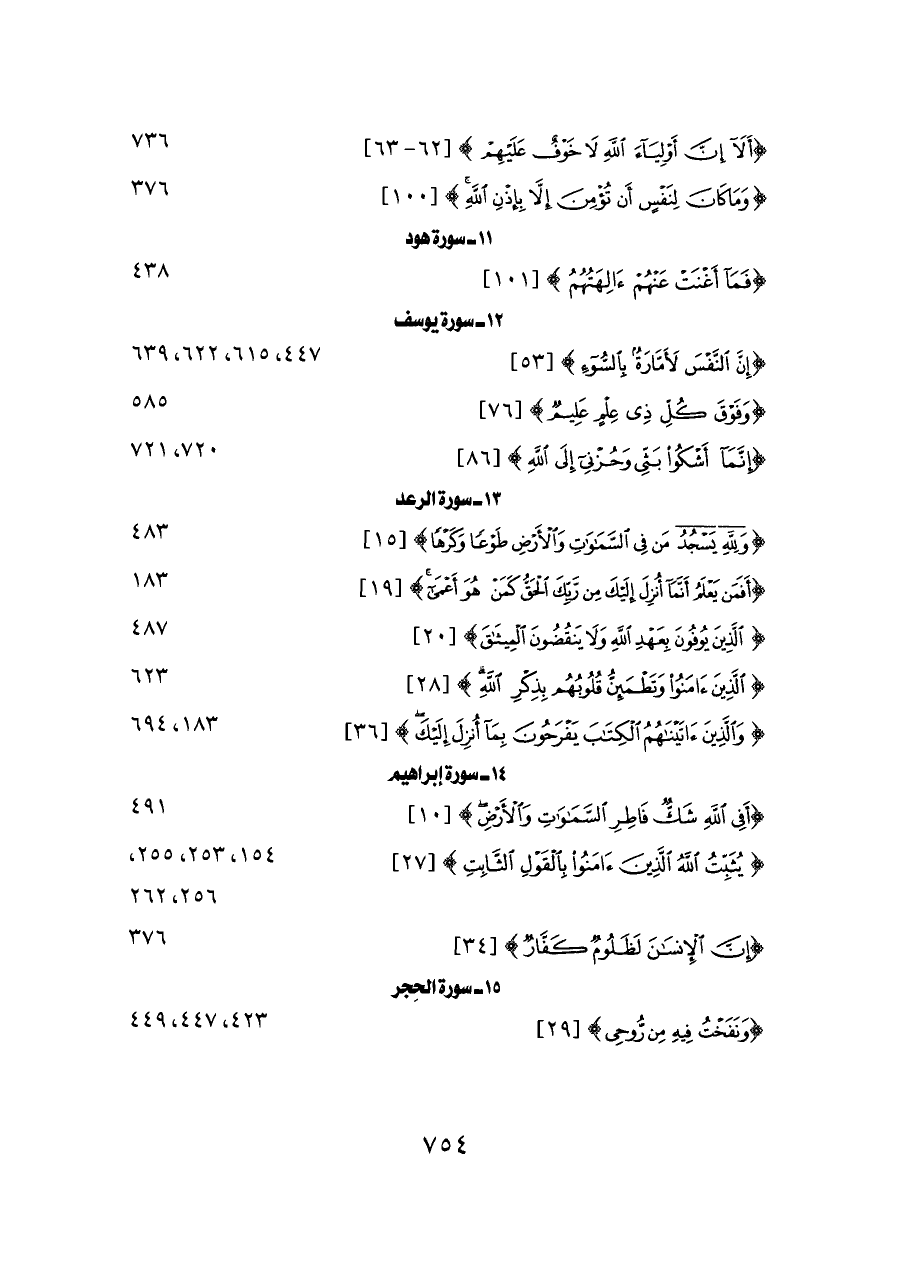 ﴿أَلَآ إِنَّ أَوْلِيَآءَ ٱللَّهِ لَا خَوْفٌ عَلَيْهِمْ ﴾ [٦٢ – ٦٣] ٧٣٦
﴿ وَمَا كَانَ لِنَفْسٍ أَن تُؤْمِنَ إِلَّا بِإِذْنِ ٱللَّهِ ۚ ﴾ [١٠٠] ٣٧٦
١١ ـ سورة هود
﴿فَمَآ أَغْنَتْ عَنْهُمْ ءَالِهَتُهُمُ ﴾ [١٠١] ٤٣٨
١٢ ـ سورة يوسف
﴿إِنَّ ٱلنَّفْسَ لَأَمَّارَةٌۢ بِٱلسُّوٓءِ ﴾ [٥٣] ٤٤٧، ٦١٥، ٦٢٢، ٦٣٩
﴿وَفَوْقَ كُلِّ ذِى عِلْمٍ عَلِيمٌ ﴾ [٧٦] ٥٨٥
﴿إِنَّمَآ أَشْكُوا۟ بَثِّى وَحُزْنِىٓ إِلَى ٱللَّهِ ﴾ [٨٦] ٧٢٠، ٧٢١
١٣ ـ سورة الرعد
﴿ وَلِلَّهِ يَسْجُدُ مَن فِى ٱلسَّمَٰوَٰتِ وَٱلْأَرْضِ طَوْعًا وَكَرْهًا﴾ [١٥] ٤٨٣
﴿أَفَمَن يَعْلَمُ أَنَّمَآ أُنزِلَ إِلَيْكَ مِن رَّبِّكَ ٱلْحَقُّ كَمَنْ هُوَ أَعْمَىٰٓ ۚ ﴾ [١٩] ١٨٣
﴿ ٱلَّذِينَ يُوفُونَ بِعَهْدِ ٱللَّهِ وَلَا يَنقُضُونَ ٱلْمِيثَٰقَ﴾ [٢٠] ٤٨٧
﴿ ٱلَّذِينَ ءَامَنُوا۟ وَتَطْمَئِنُّ قُلُوبُهُم بِذِكْرِ ٱللَّهِ ۗ ﴾ [٢٨] ٦٢٣
﴿ وَٱلَّذِينَ ءَاتَيْنَٰهُمُ ٱلْكِتَٰبَ يَفْرَحُونَ بِمَآ أُنزِلَ إِلَيْكَ ۖ ﴾ [٣٦] ١٨٣، ٦٩٤
١٤ ـ سورة إبراهيم
﴿أَفِى ٱللَّهِ شَكٌّ فَاطِرِ ٱلسَّمَٰوَٰتِ وَٱلْأَرْضِ ۖ ﴾ [١٠] ٤٩١
﴿ يُثَبِّتُ ٱللَّهُ ٱلَّذِينَ ءَامَنُوا۟ بِٱلْقَوْلِ ٱلثَّابِتِ ﴾ [٢٧] ١٥٤، ٢٥٣، ٢٥٥،
٢٥٦، ٢٦٢
﴿إِنَّ ٱلْإِنسَٰنَ لَظَلُومٌ كَفَّارٌ ﴾ [٣٤] ٣٧٦
١٥ ـ سورة الحِجر
﴿وَنَفَخْتُ فِيهِ مِن رُّوحِى ﴾ [٢٩] ٤٢٣، ٤٤٧، ٤٤٩
٧٥٤